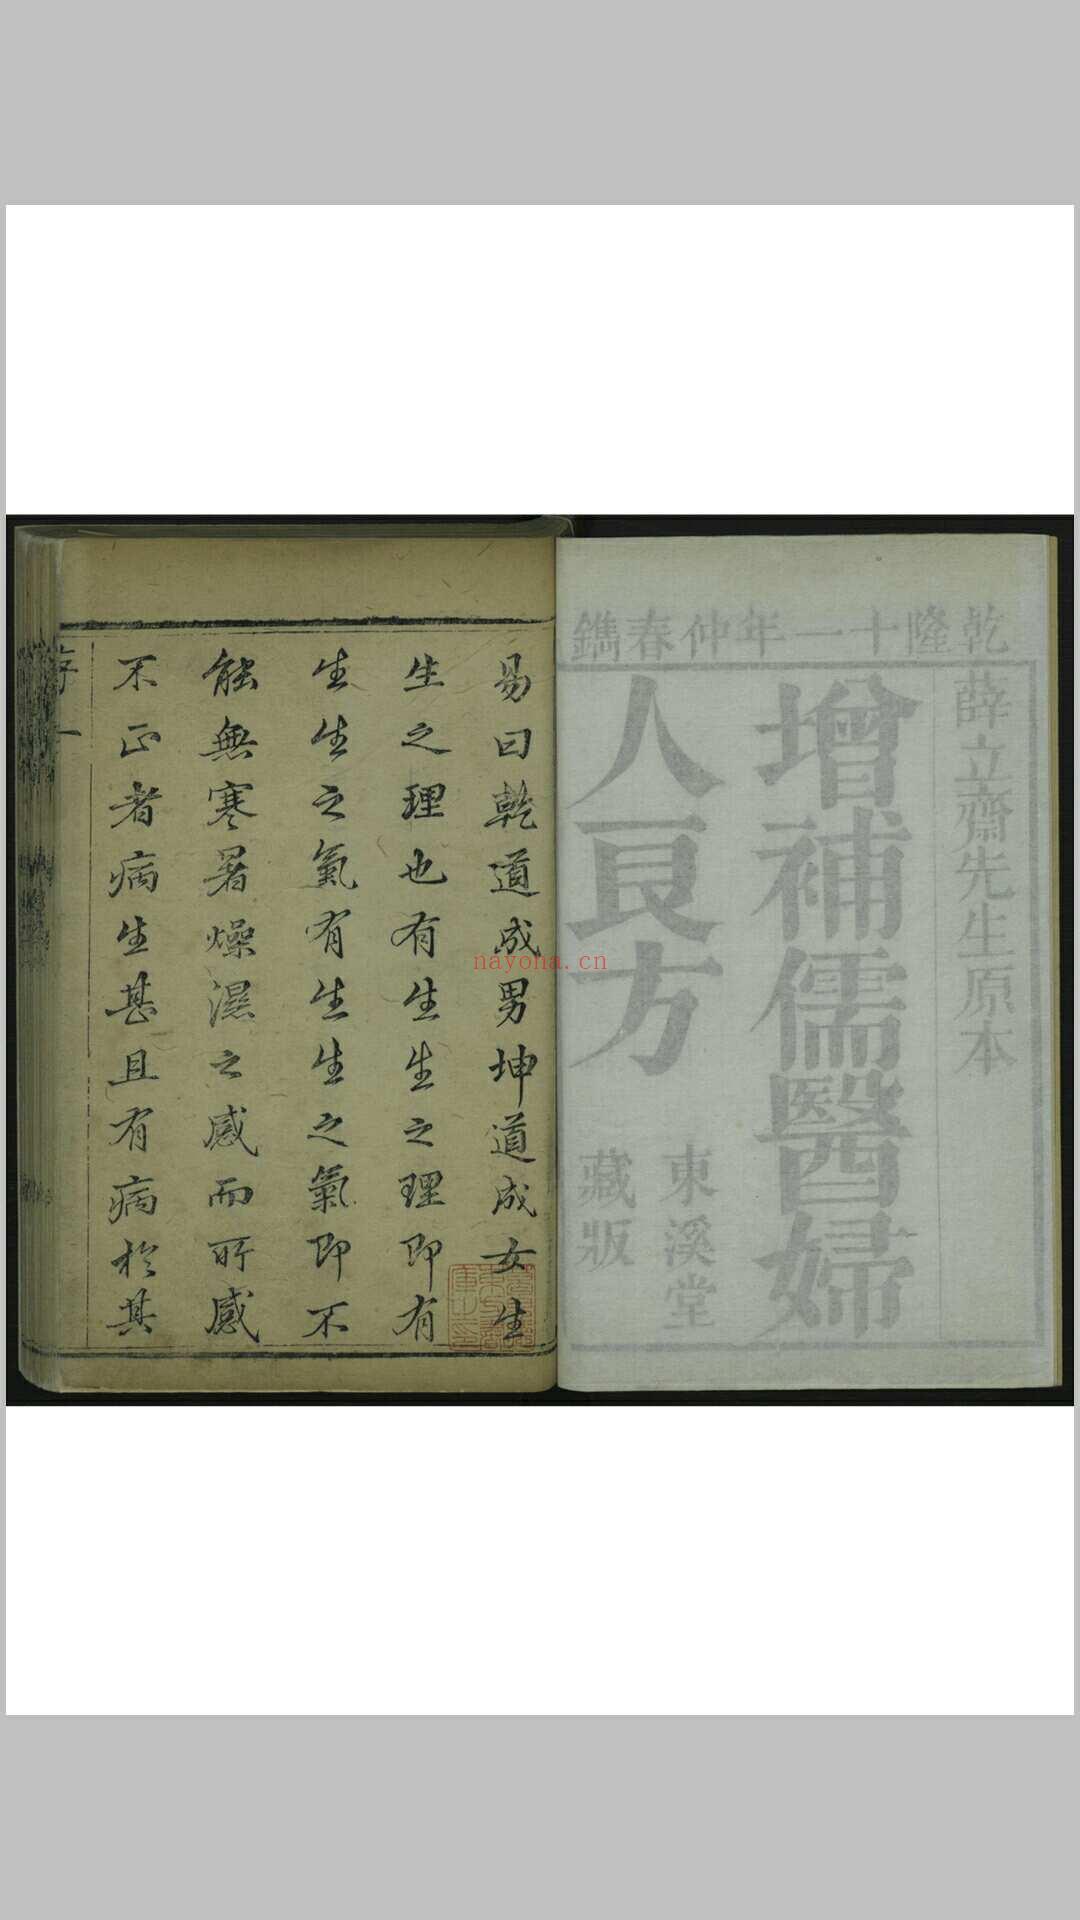 乾隆十一年仲春鐫
薛立齋先生原本
增補儒醫婦
人良方
東溪堂
藏版
易曰乾道成男坤道成女生
生之理也有生生之理即有
生生之氣有生生之氣即不
能無寒暑燥濕之感而所感
不正者病生甚且有病於其
序
一
nayona.cn